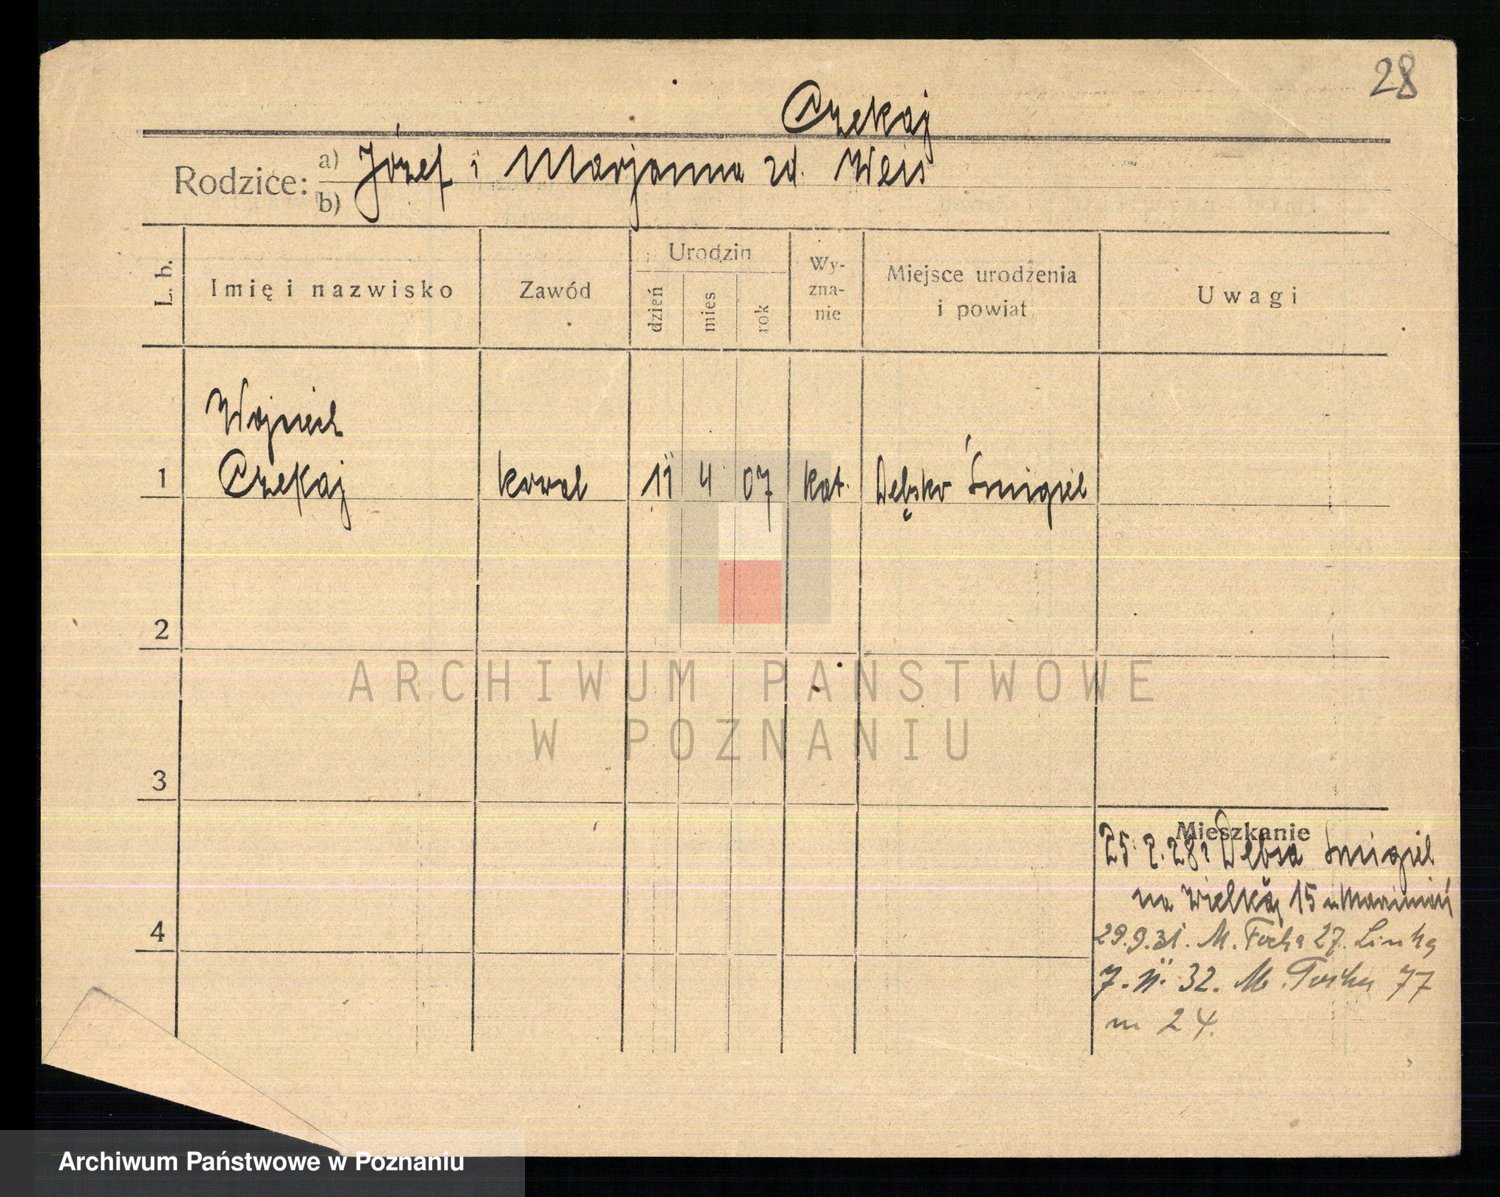 28
Czekaj
Rodzice: a) Józef i Marjanna zd. Weis
b)
L. b. Imię i nazwisko Zawód Urodzin dzień mies. rok Wy-zna-nie Miejsce urodzenia i powiat Uwagi
Wojciech
1 Czekaj kowal 11 4 07 kat. Dębsko Śmigiel
2
3
4
ARCHIWUM PAŃSTWOWE
W POZNANIU
Mieszkanie
25. 2. 28 z Dębska Śmigiel
na Wielką 15 u
29.9.31. M. Focha 27.
7. 11. 32. M. Focha 77
m 24.
Archiwum Państwowe w Poznaniu